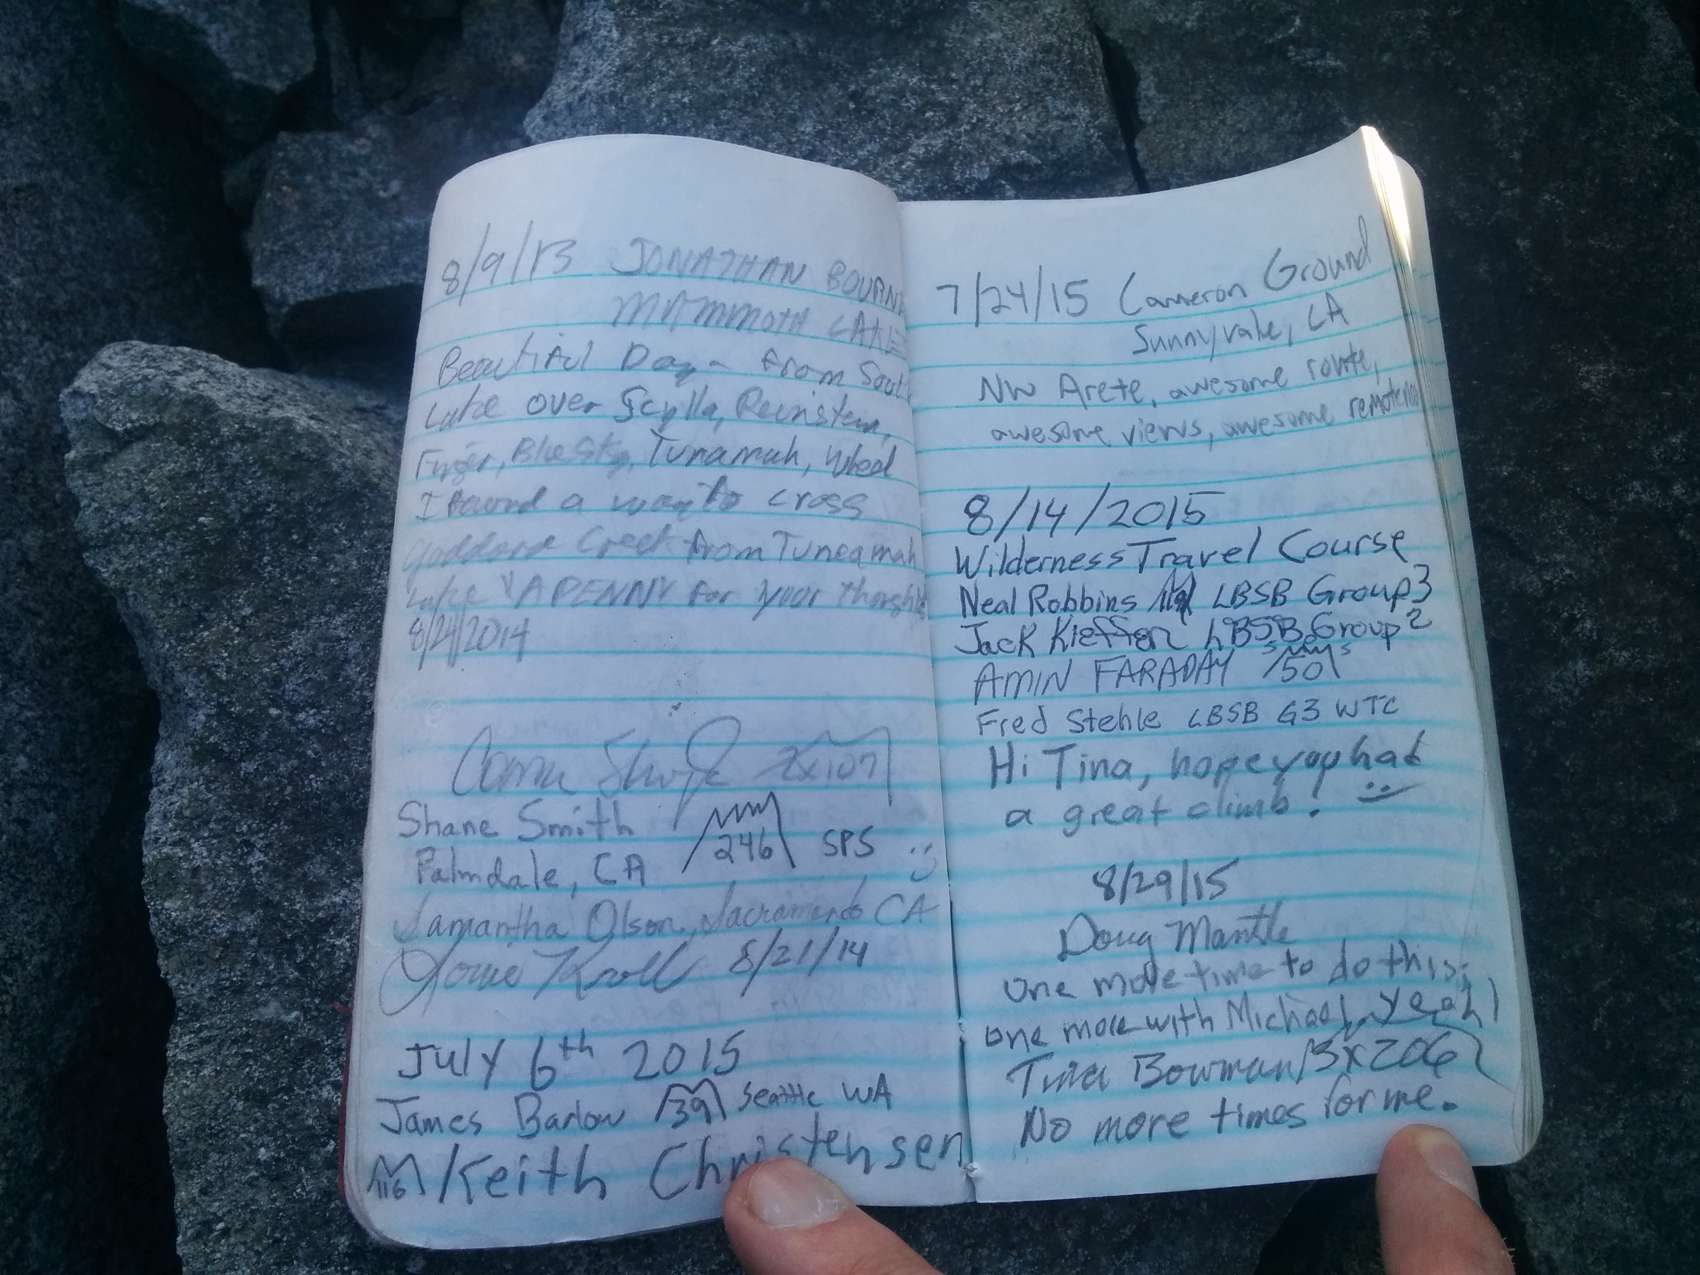 8/9/13 JONATHAN BOURN
MAMMOTH LAKE
Beautiful Day - from South
Lake over Scylla, Reinstein,
Finger, Blue Sky, Tunamah, Wheel
I found a way to cross
Goddard Creek from Tuneamah
Lake "A PENNY for your thoughts
8/21/2014
2x107
Shane Smith 246 SPS
Palmdale, CA
Samantha Olson, Sacramento CA
Kroll 8/21/14
JULY 6th 2015
James Barlow 39 Seattle WA
116 / Keith Christensen
7/24/15 Cameron Ground
Sunnyvale, CA
NW Arete, awesome route,
awesome views, awesome remoteness
8/14/2015
Wilderness Travel Course
Neal Robbins LBSB Group 3
Jack Kieffer LBSB Group 2
AMIN FARADAY 150
Fred Stehle LBSB G3 WTC
Hi Tina, hope you had
a great climb!
8/29/15
Doug Mantle
one more time to do this;
one more with Michael, yeah!
Tina Bowman 3x206
No more times for me.